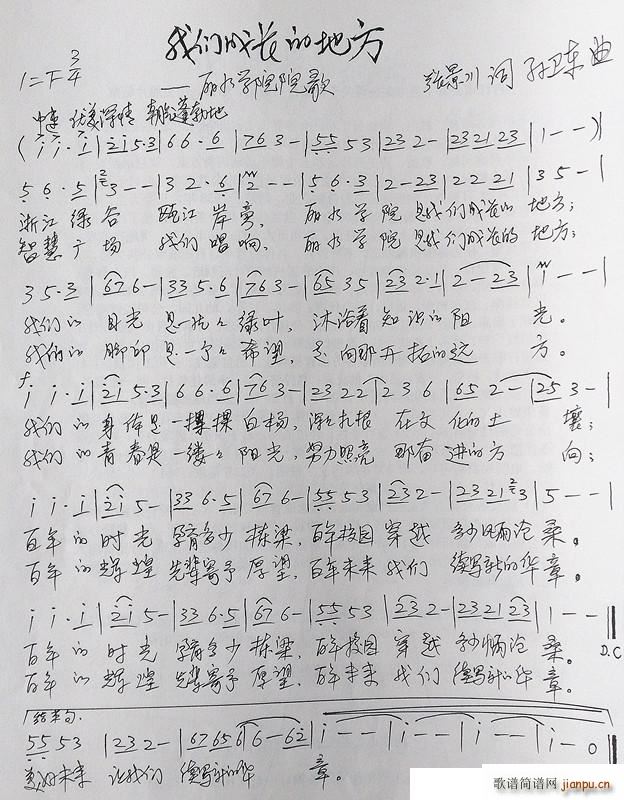 我们成长的地方
1=F 3/4
——丽水学院院歌
张景川 词 孙卫东 曲
中速 优美深情 朝气蓬勃地
(i i· i | 2i 5·3 | 6 6·6 | 76 3 - | 55 53 | 23 2 - | 2321 23 | 1 - - )|
5 6·5 | 3 - - | 3 2·6 | 2 - - | 5 6·3 | 2 - 23 | 22 21 | 3 5 - |
浙江绿谷 瓯江岸旁, 丽水学院 是我们成长的 地方;
智慧广场 我们唱响, 丽水学院 是我们成长的 地方;
3 5·3 | 67 6 - | 33 5·6 | 76 3 - | 65 35 | 23 2·1 | 2 - 23 | 1 - - |
我们的 目光 是一片片 绿叶, 沐浴着 知识的阳 光。
我们的 脚印 是一个个 希望, 走向那开拓的远 方。
f
i i·i | 2i 5·3 | 6 6·6 | 76 3 - | 23 22 | 2 3 6 | 65 2 - | 25 3 - |
我们的身体是一棵棵白杨, 深深扎根 在文化的土 壤;
我们的青春是一缕缕阳光, 努力照亮 那奋进的方 向;
i i·i | 2i 5 - | 33 6·5 | 67 6 - | 55 53 | 23 2 - | 23 21 3 | 5 - - |
百年的时光 孕育多少 栋梁, 百年校园 穿越 多少风雨沧桑。
百年的辉煌 先辈寄予 厚望, 百年未来 我们 续写新的华章。
i i·i | 2i 5 - | 33 6·5 | 67 6 - | 55 53 | 23 2 - | 2321 23 | 1 - - ‖
百年的时光 孕育多少 栋梁, 百年校园 穿越 多少风雨沧 桑。
D.C
百年的辉煌 先辈寄予 厚望, 百年未来 我们 续写新的华 章。
结束句.
55 53 | 23 2 - | 67 656 | 6 - 62 | i - - | i - - | i - - | i - 0 ‖
美好未来 让我们 续写新的华 章。
歌谱简谱网 jianpu.cn